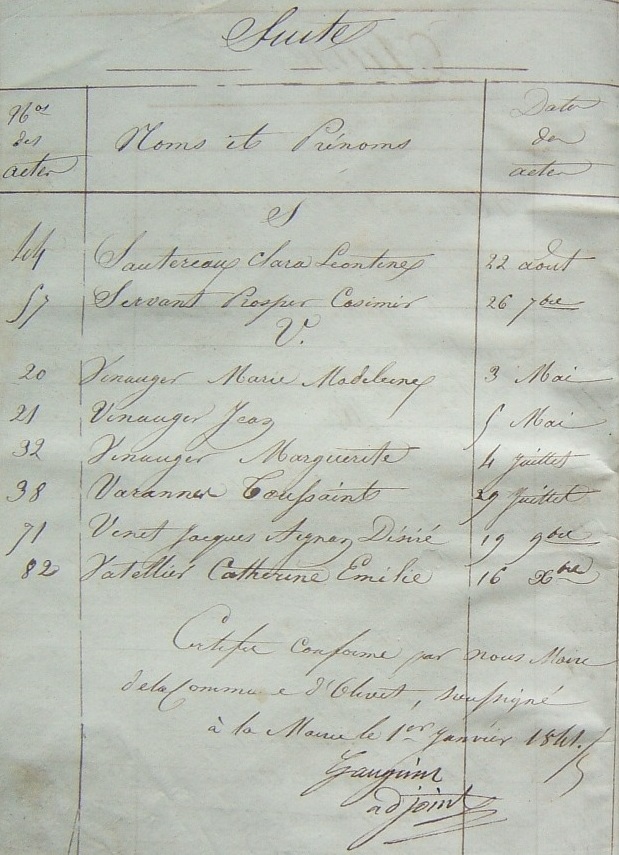 Suite
Nos des actes Noms et Prénoms Dates des actes
S
44 Sautereau Clara Léontine 22 aout
57 Servant Prosper Casimir 26 7bre
V.
20 Vinauger Marie Madeleine 3 Mai
21 Vinauger Jean 5 Mai
32 Vinauger Marguerite 4 Juillet
38 Varanne Toussaint 29 Juillet
71 Venet Jacques Aignan Désiré 19 9bre
82 Vatellier Catherine Emélie 16 Xbre
Certifié conforme par nous Maire
de la Commune d'Olivet, soussigné
à la Mairie le 1er Janvier 1841.
adjoint